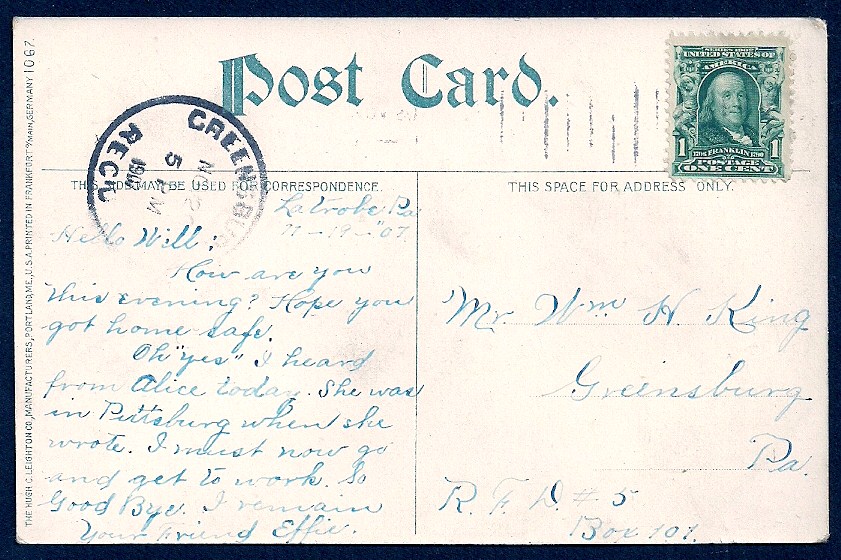 Post Card.
SERIES 1902
UNITED STATES OF
AMERICA
1 FRANKLIN 1
POSTAGE
ONE CENT
GREENSBURG
5 M
190
REC'D
THIS SIDE MAY BE USED FOR CORRESPONDENCE.
THIS SPACE FOR ADDRESS ONLY.
Latrobe Pa
11-19-"07.
Hello Will;
How are you
this evening? Hope you
got home safe.
Oh "yes" I heard
from Alice today. She was
in Pittsburg when she
wrote. I must now go
and get to work. So
Good Bye. I remain
Your Friend Effie.
Mr. Wm H. King
Greensburg
Pa.
R. F. D. # 5
Box 101.
THE HUGH C. LEIGHTON CO., MANUFACTURERS, PORTLAND, ME., U.S.A. PRINTED IN FRANKFORT O/MAIN, GERMANY 1067.